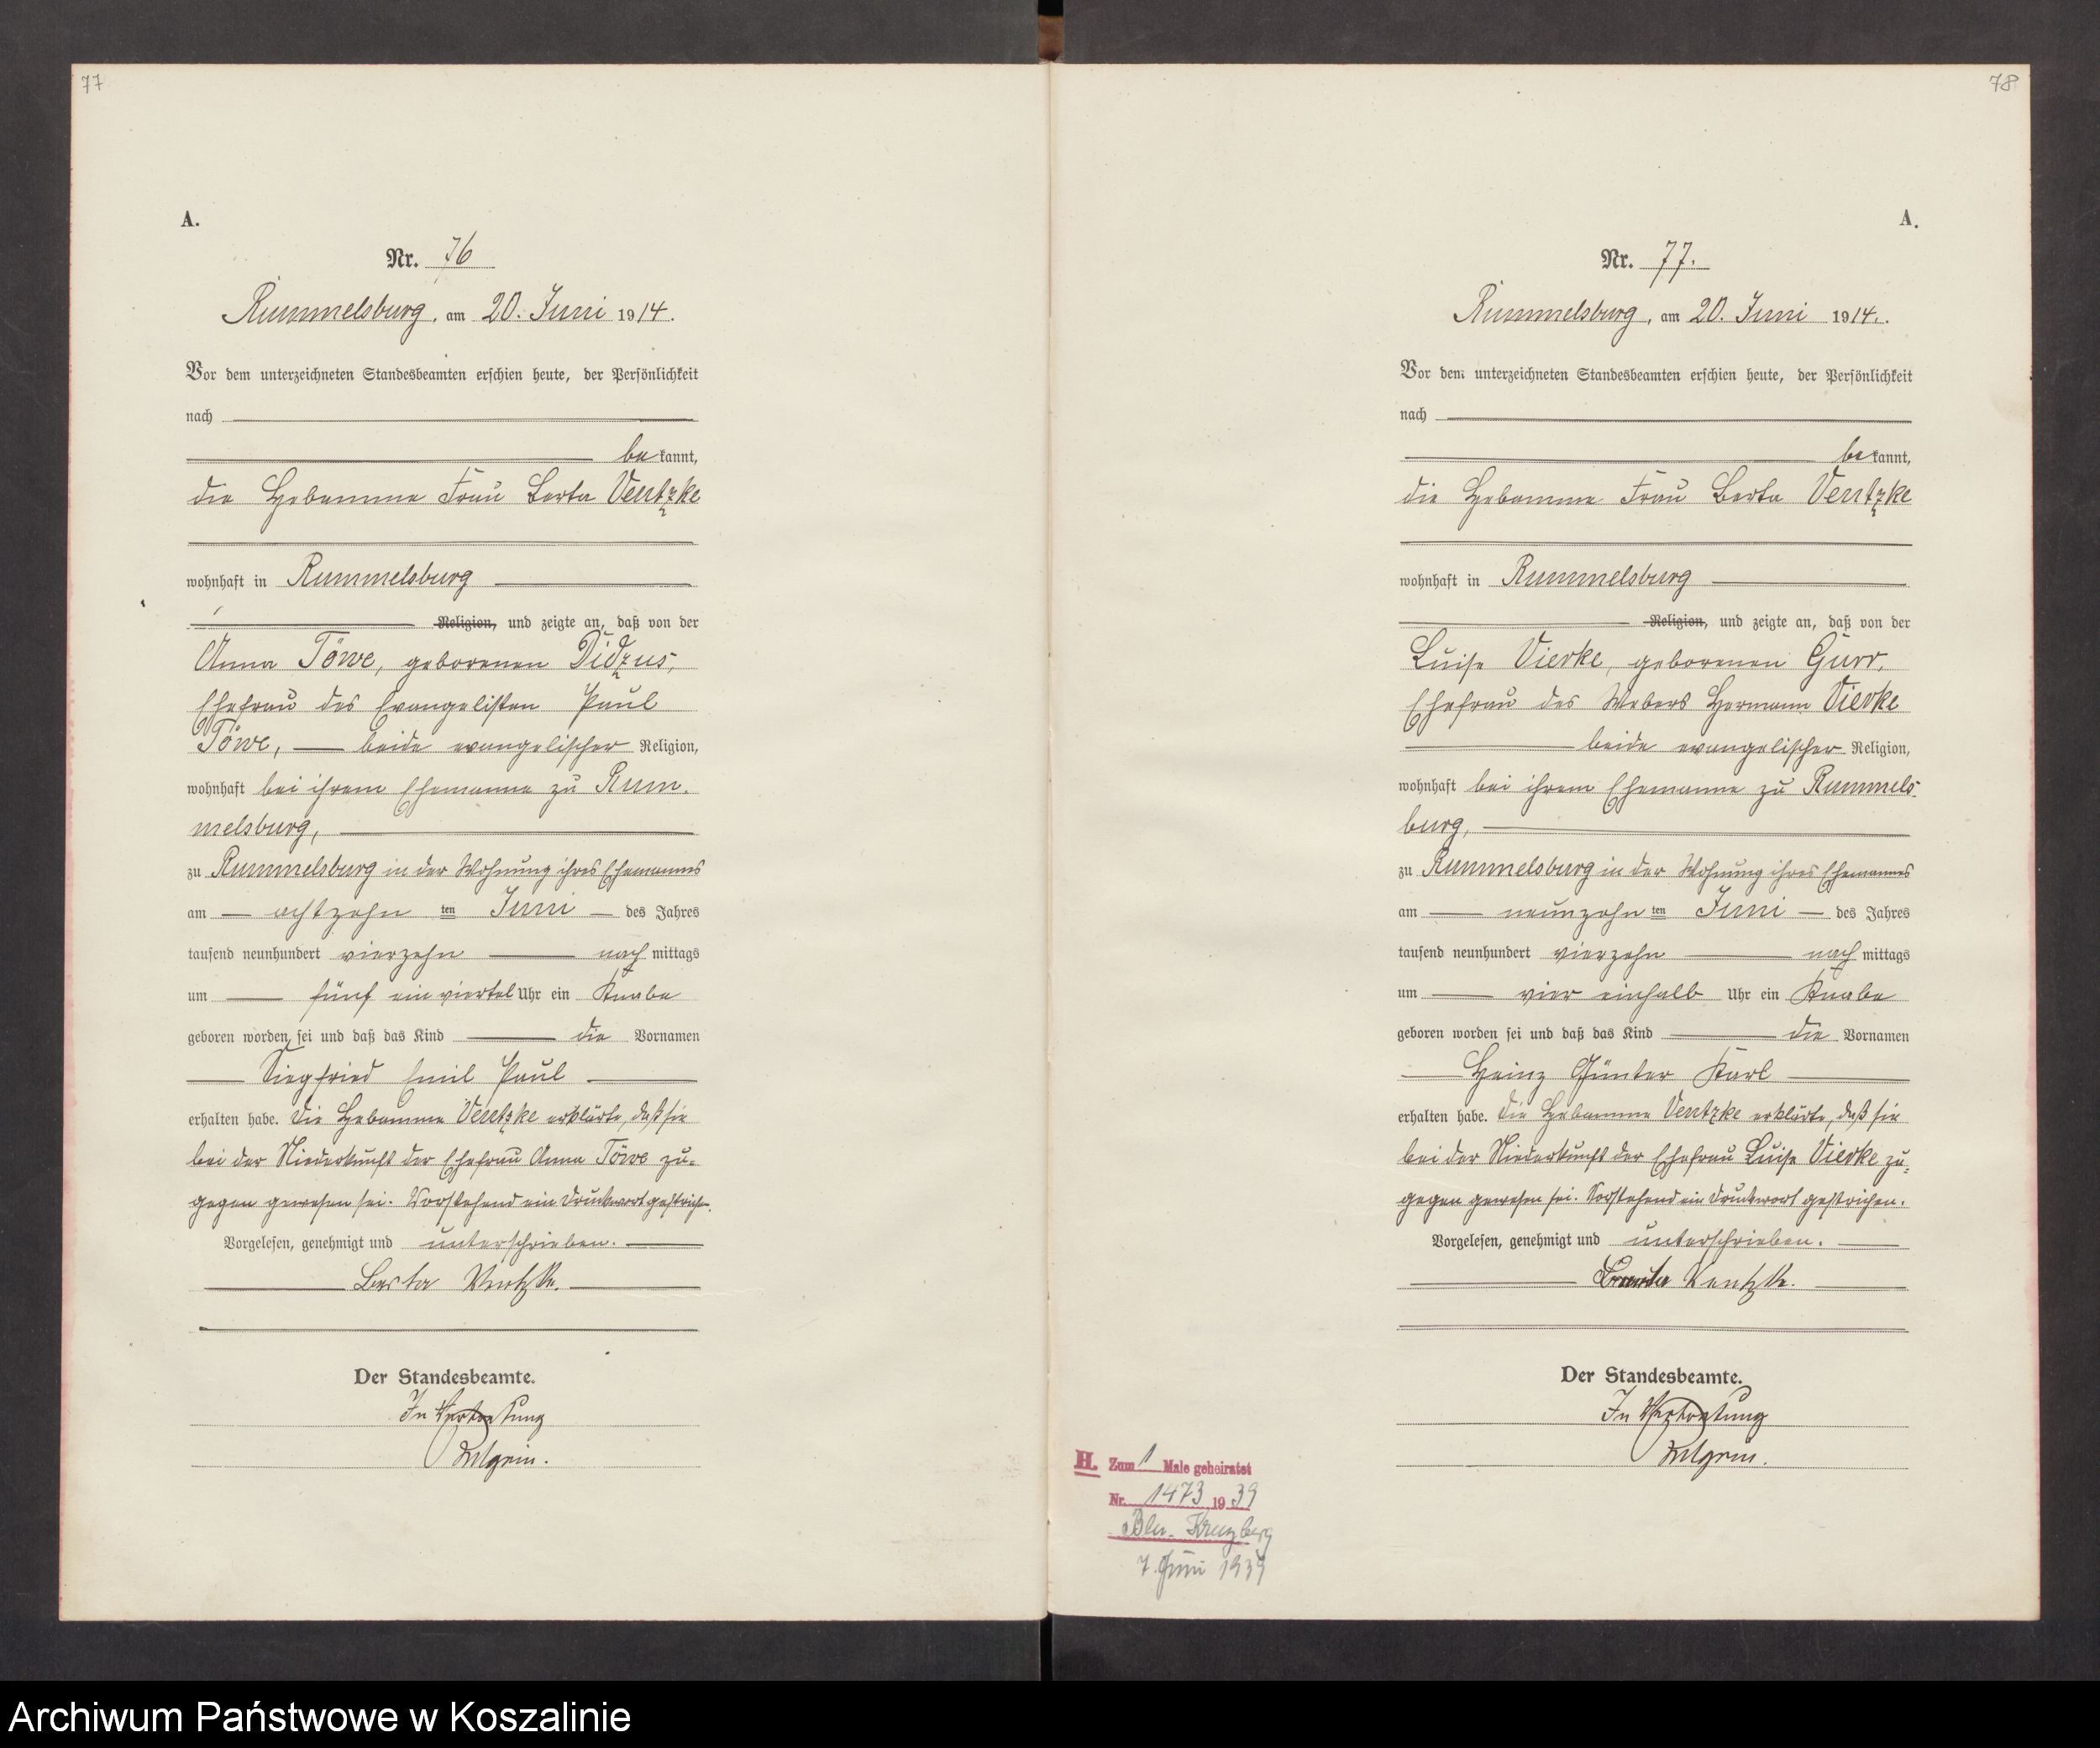 77
A.
Nr. 76
Rummelsburg, am 20. Juni 1914.
Vor dem unterzeichneten Standesbeamten erschien heute, der Persönlichkeit
nach
be kannt,
die Hebamme Frau Berta Ventzke
wohnhaft in Rummelsburg
Religion, und zeigte an, daß von der
Anna Töwe, geborenen Didzus,
Ehefrau des Evangelisten Paul
Töwe, beide evangelischer Religion,
wohnhaft bei ihrem Ehemanne zu Rum-
melsburg,
zu Rummelsburg in der Wohnung ihres Ehemannes
am achtzehn ten Juni des Jahres
tausend neunhundert vierzehn nach mittags
um fünf ein viertel Uhr ein Knabe
geboren worden sei und daß das Kind die Vornamen
Siegfried Emil Paul
erhalten habe. Die Hebamme Ventzke erklärte, daß sie
bei der Niederkunft der Ehefrau Anna Töwe zu-
gegen gewesen sei. Vorstehend ein Druckwort gestrichen.
Vorgelesen, genehmigt und unterschrieben.
Berta Ventzke.
Der Standesbeamte.
In Vertretung
78
A.
Nr. 77.
Rummelsburg, am 20. Juni 1914.
Vor dem unterzeichneten Standesbeamten erschien heute, der Persönlichkeit
nach
be kannt,
die Hebamme Frau Berta Ventzke
wohnhaft in Rummelsburg
Religion, und zeigte an, daß von der
Luise Vierke, geborenen Gurr,
Ehefrau des Webers Hermann Vierke
beide evangelischer Religion,
wohnhaft bei ihrem Ehemanne zu Rummels-
burg,
zu Rummelsburg in der Wohnung ihres Ehemannes
am neunzehn ten Juni des Jahres
tausend neunhundert vierzehn nach mittags
um vier einhalb Uhr ein Knabe
geboren worden sei und daß das Kind die Vornamen
Heinz Günter Karl
erhalten habe. Die Hebamme Ventzke erklärte, daß sie
bei der Niederkunft der Ehefrau Luise Vierke zu-
gegen gewesen sei. Vorstehend ein Druckwort gestrichen.
Vorgelesen, genehmigt und unterschrieben.
Berta Ventzke.
Der Standesbeamte.
In Vertretung
H. Zum 1 Male geheiratet
Nr. 1473 1939
Bln. Kreuzberg
7. Juni 1939
Archiwum Państwowe w Koszalinie